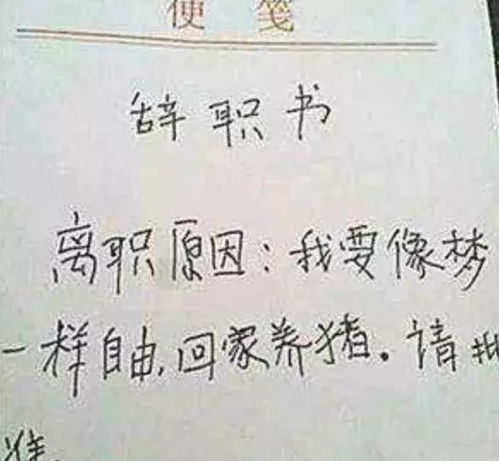 便笺
辞职书
离职原因：我要像梦
一样自由，回家养猪。请批
准。